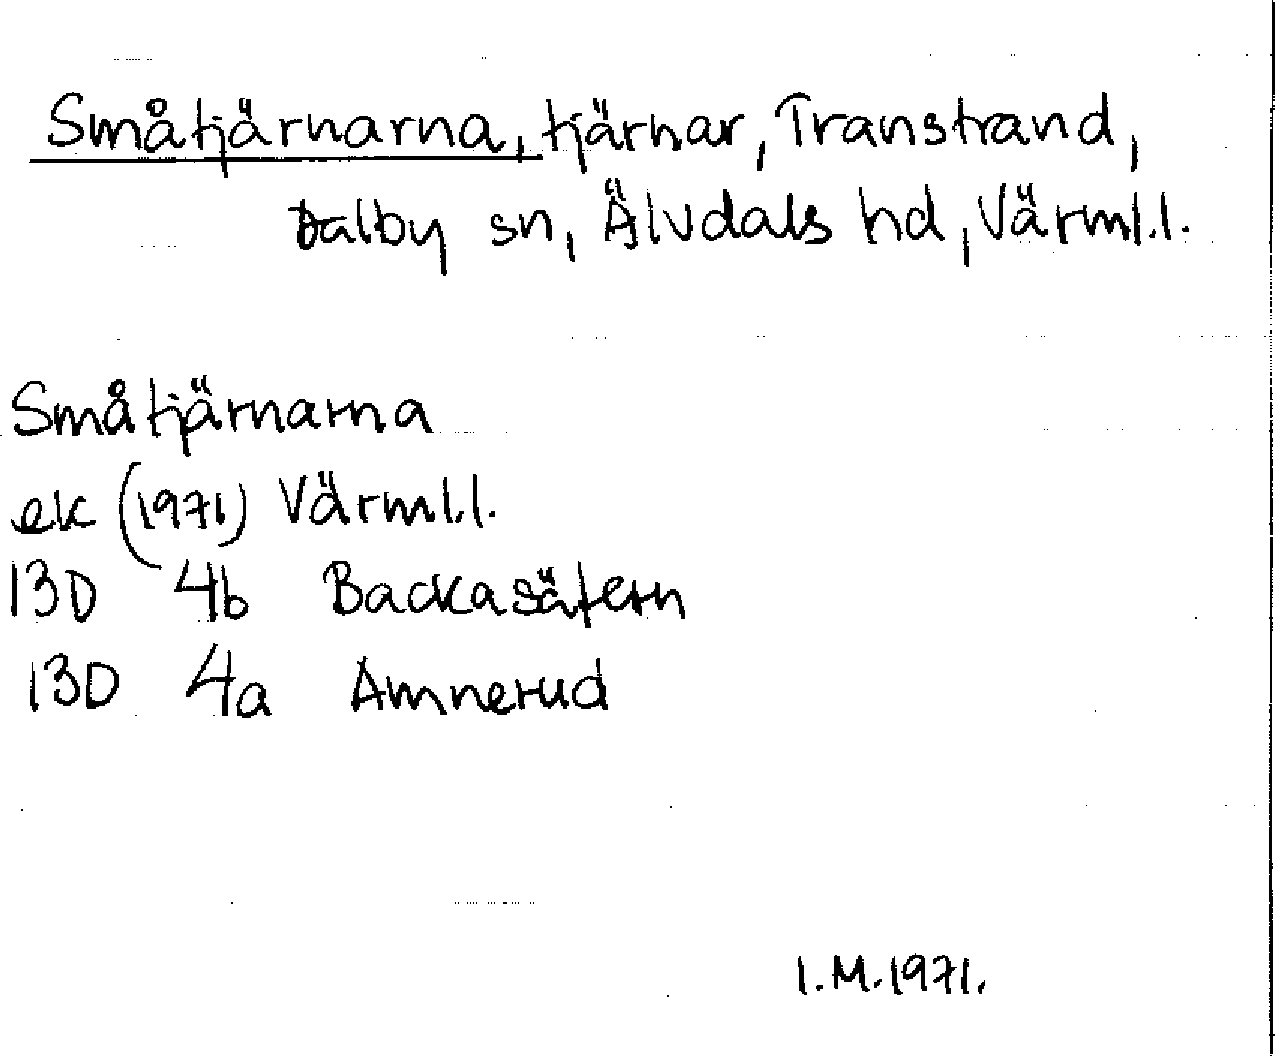 Småtjärnarna, tjärnar, Transtrand,
Dalby sn, Älvdals hd, Värml.l.
Småtjärnarna
ek (1971) Värml.l.
13D 4b Backasätern
13D 4a Amnerud
I.M.1971.